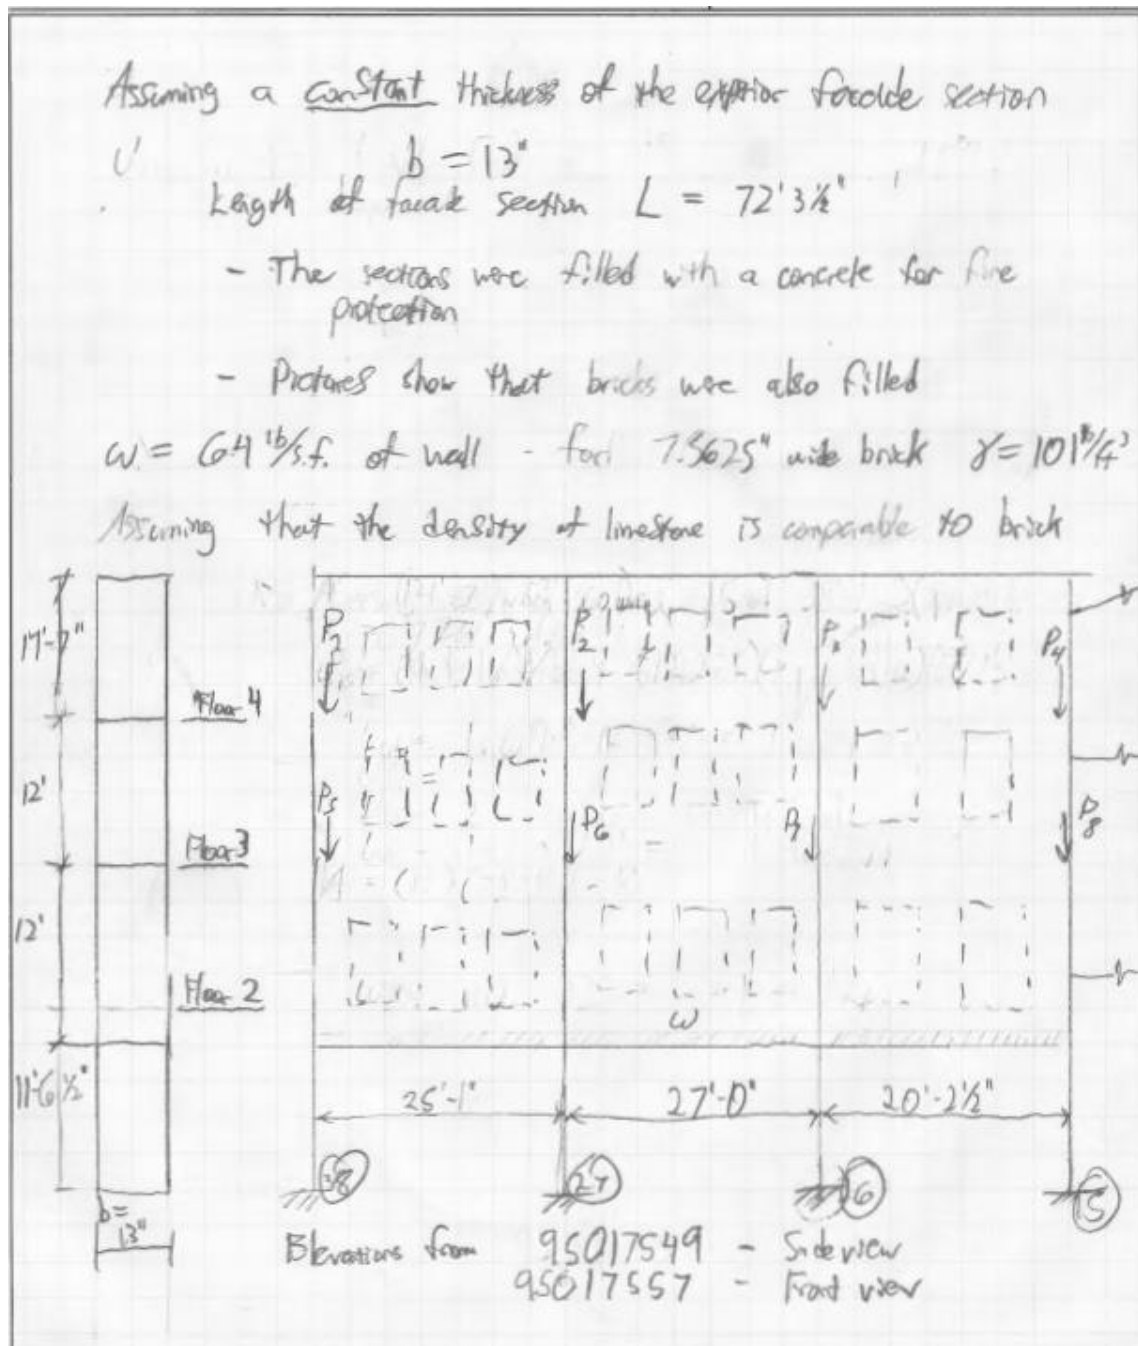 Assuming a constant thickness of the exterior facade section
b = 13"
Length of facade section L = 72' 3½"
- The sections were filled with a concrete for fire
protection
- Pictures show that bricks were also filled
ω = 64 lb/s.f. of wall - for 7.5625" wide brick γ = 101 lb/ft³
Assuming that the density of limestone is comparable to brick
17'-7"
P2
P4
Floor 4
12'
P5
P6
P8
Floor 3
12'
Floor 2
ω
11'-6½"
25'-1"
27'-0"
20'-2½"
b=
13"
Elevations from 95017549 - Side view
95017557 - Front view